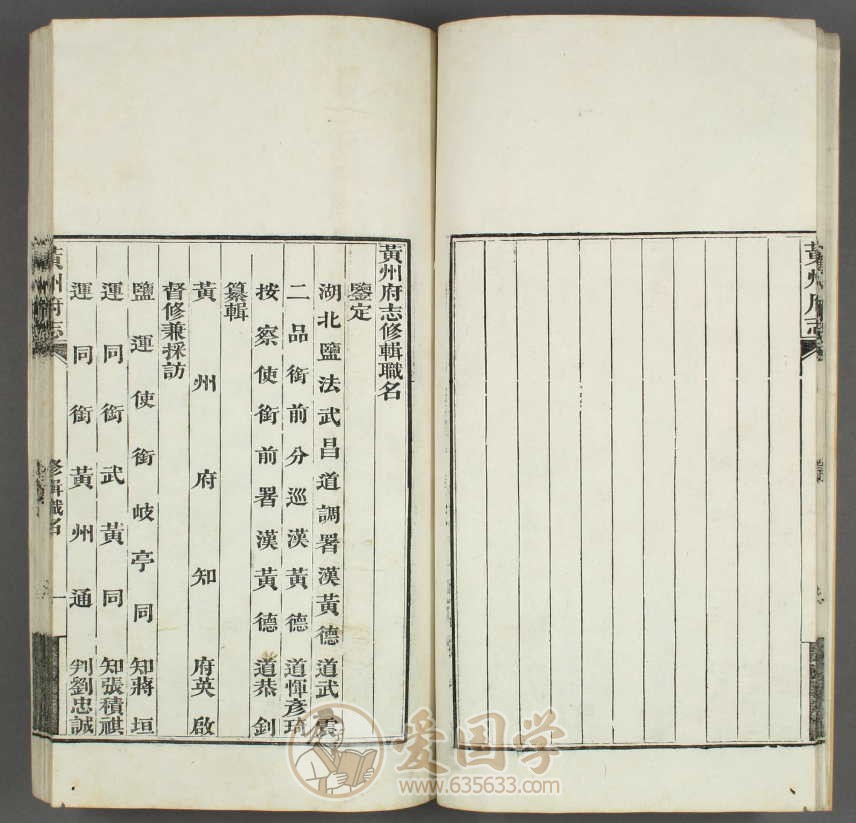 黃州府志
黃州府志修輯職名
鑒定
湖北鹽法武昌道調署漢黃德道武震
二品銜前分巡漢黃德道惲彥琦
按察使銜前署漢黃德道恭釗
纂輯
黃州府知府英啟
督修兼採訪
鹽運使銜岐亭同知蔣垣
運同銜武黃同知張積祺
運同銜黃州通判劉忠誠
黃州府志
修輯職名
一
爱国学
www.635633.com